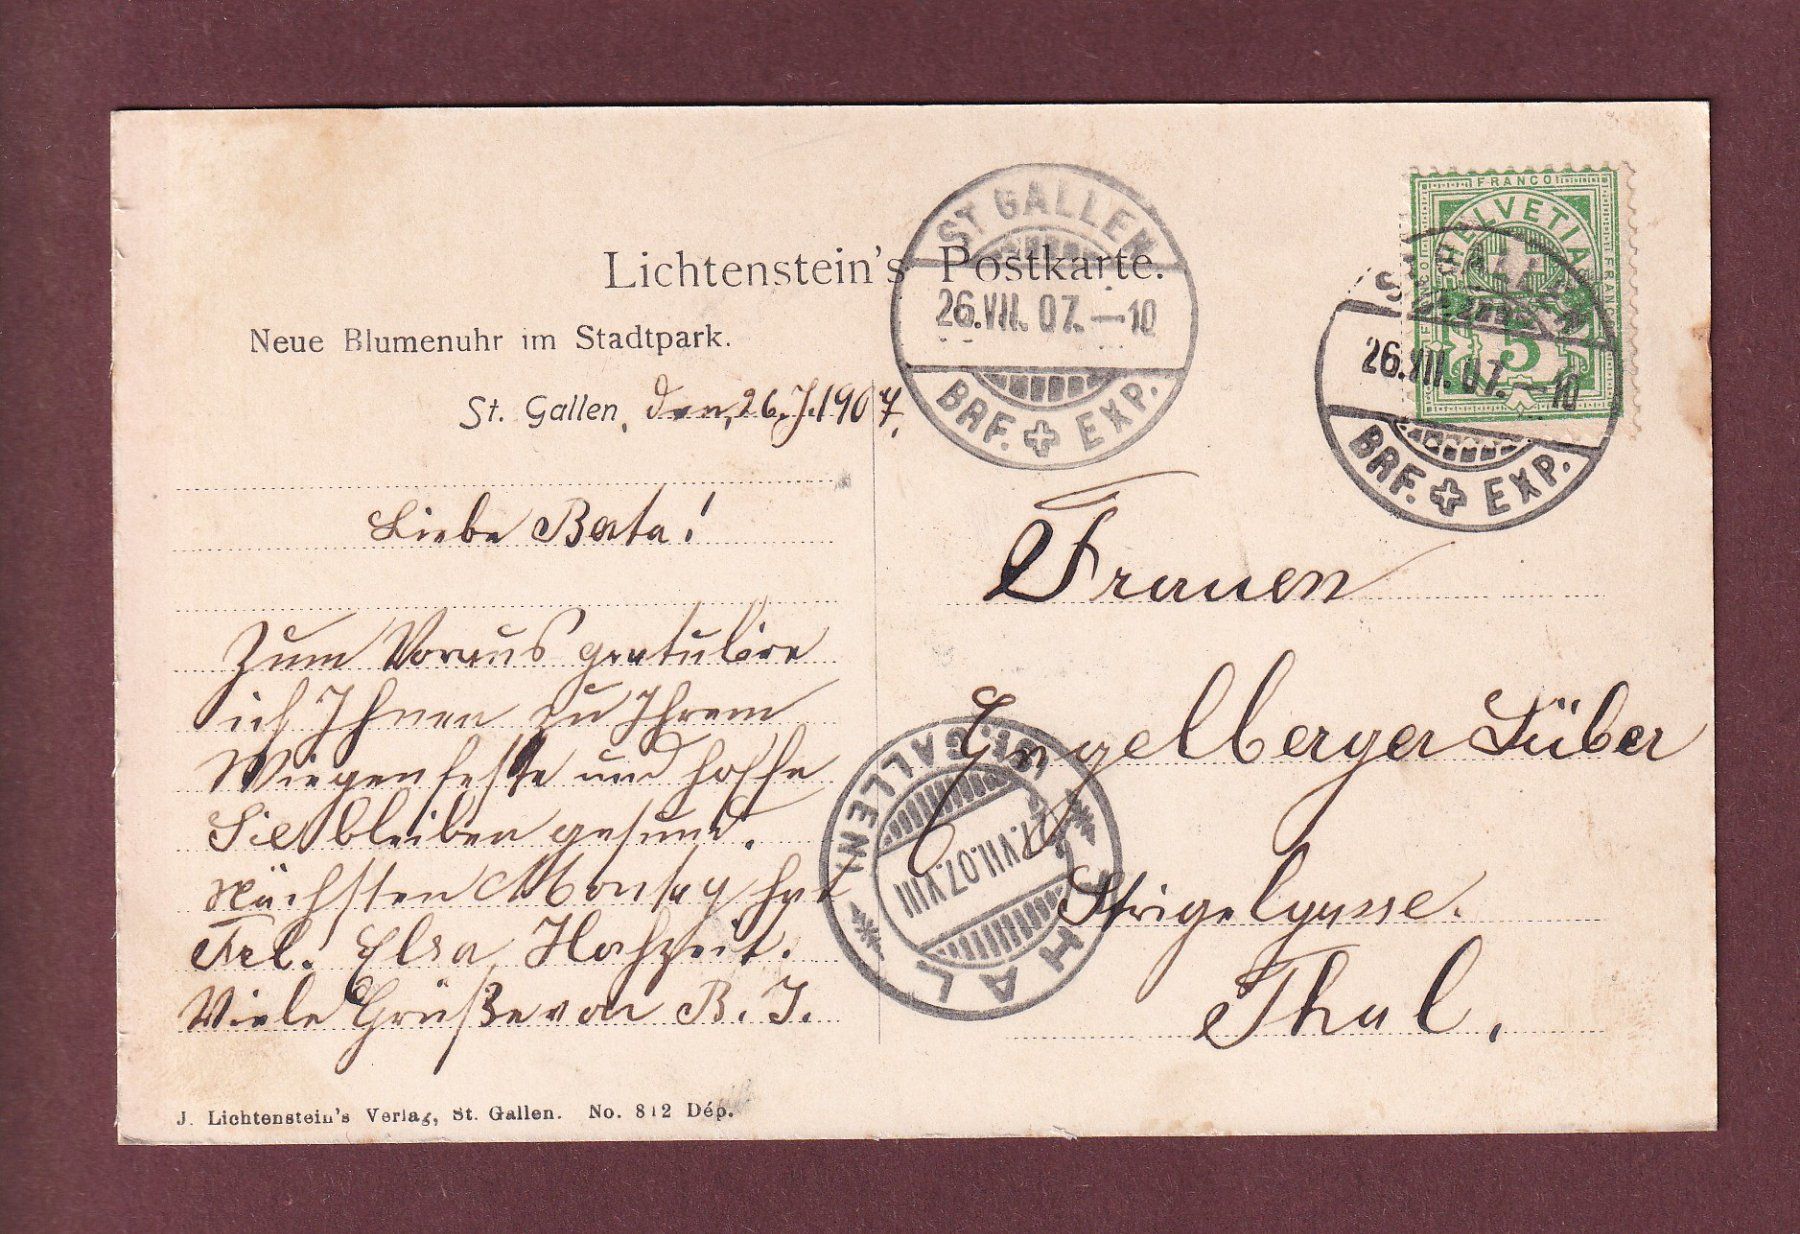 Lichtenstein's Postkarte.
Neue Blumenuhr im Stadtpark.
St. Gallen, den, 26. J. 1907.
Liebe Berta!
Zum Voraus gratulire
ich Ihnen zu Ihrem
Wiegenfeste und hoffe
Sie bleiben gesund.
Nächsten Montag hat
Frl. Elsa Hochzeit.
Viele Grüße von B. J.
J. Lichtenstein's Verlag, St. Gallen. No. 812 Dép.
ST GALLEN
26.VII.07.—10
BRF. EXP.
FRANCO
HELVETIA
FRANCO
FRANCO
5
26.VII.07.—10
BRF. EXP.
Frauen
Engelberger
Thal.
THAL
(ST. GALLEN)
27.VII.07.VIII